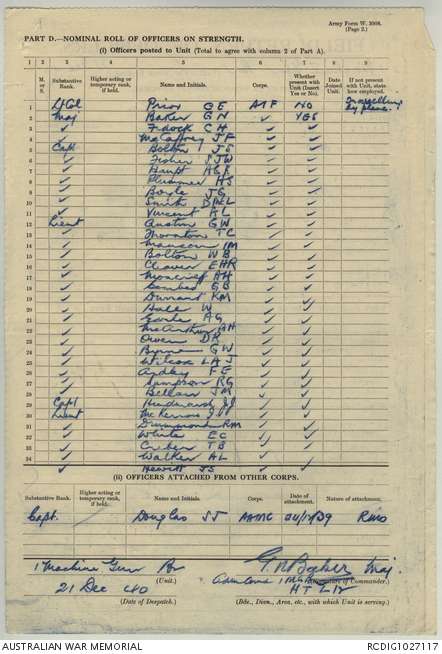 Army Form W. 3008.
(Page 2.)
PART D.—NOMINAL ROLL OF OFFICERS ON STRENGTH.
(i) Officers posted to Unit (Total to agree with column 2 of Part A).
1 2 3 4 5 6 7 8 9
M. or S. Substantive Rank. Higher acting or temporary rank, if held. Name and Initials. Corps. Whether present with Unit (Insert Yes or No). Date Joined Unit. If not present with Unit, state how employed.
1 Lt Col Prior G E AIF NO Travelling by plane.
2 Maj Baker G N ✓ YES
3 ✓ Fidock C H ✓ ✓
4 ✓ McCaffrey J F ✓ ✓
5 Capt Bolton J S ✓ ✓
6 ✓ Fisher S J W ✓ ✓
7 ✓ ✓ ✓
8 ✓ Plummer H S ✓ ✓
9 ✓ Boyle J G ✓ ✓
10 ✓ Smith ✓ ✓
11 ✓ Vincent A L ✓ ✓
12 Lieut Austin G W ✓ ✓
13 ✓ Thornton T C ✓ ✓
14 ✓ I M ✓ ✓
15 ✓ Bolton W B ✓ ✓
16 ✓ Cleaver E H R ✓ ✓
17 ✓ Moncrief A H ✓ ✓
18 ✓ G B ✓ ✓
19 ✓ Durrant K M ✓ ✓
20 ✓ Hall W ✓ ✓
21 ✓ A G ✓ ✓
22 ✓ McArthur A H ✓ ✓
23 ✓ Owen D R ✓ ✓
24 ✓ Byrne G W ✓ ✓
25 ✓ Wilcox L A J ✓ ✓
26 ✓ Ardley F E ✓ ✓
27 ✓ Sampson R G ✓ ✓
28 ✓ Bellair J M ✓ ✓
29 Capt ✓ ✓
30 Lieut ✓ ✓
31 ✓ Drummond R M ✓ ✓
32 ✓ White E C ✓ ✓
33 ✓ T B ✓ ✓
34 ✓ Walker A L ✓ ✓
✓ Hewitt J S ✓ ✓
(ii) OFFICERS ATTACHED FROM OTHER CORPS.
Substantive Rank. Higher acting or temporary rank, if held. Name and Initials. Corps. Date of attachment. Nature of attachment.
Capt. Douglas S J AAMC RMO
1 Machine Gun Bn G N Baker Maj.
(Unit.) (Signature of Commander.)
21 Dec 40
(Date of Despatch.) (Bde., Divn., Area, etc., with which Unit is serving.)
AUSTRALIAN WAR MEMORIAL RCDIG1027117